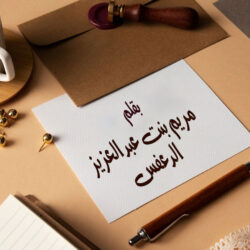 بقلم
مريم بنت عبدالعزيز
الدغفس